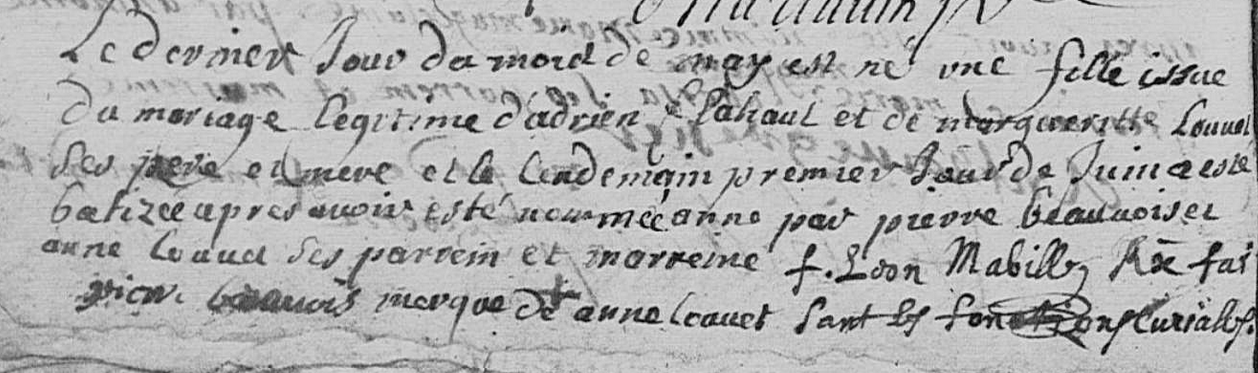 Le dernier Jour du mois de may est né une fille issue
du mariage legitime d'adrien Lahaut et de margueritte Louuet
ses pere et mere et le lendemain premier Jour de Juin a esté
batizee apres auoir esté nommée anne par pierre beauuois et
anne Louuet ses parrein et marreine f. Leon Mabille fai
pierre beauuois merque de + anne Louuet sant les fonctions Curiales.